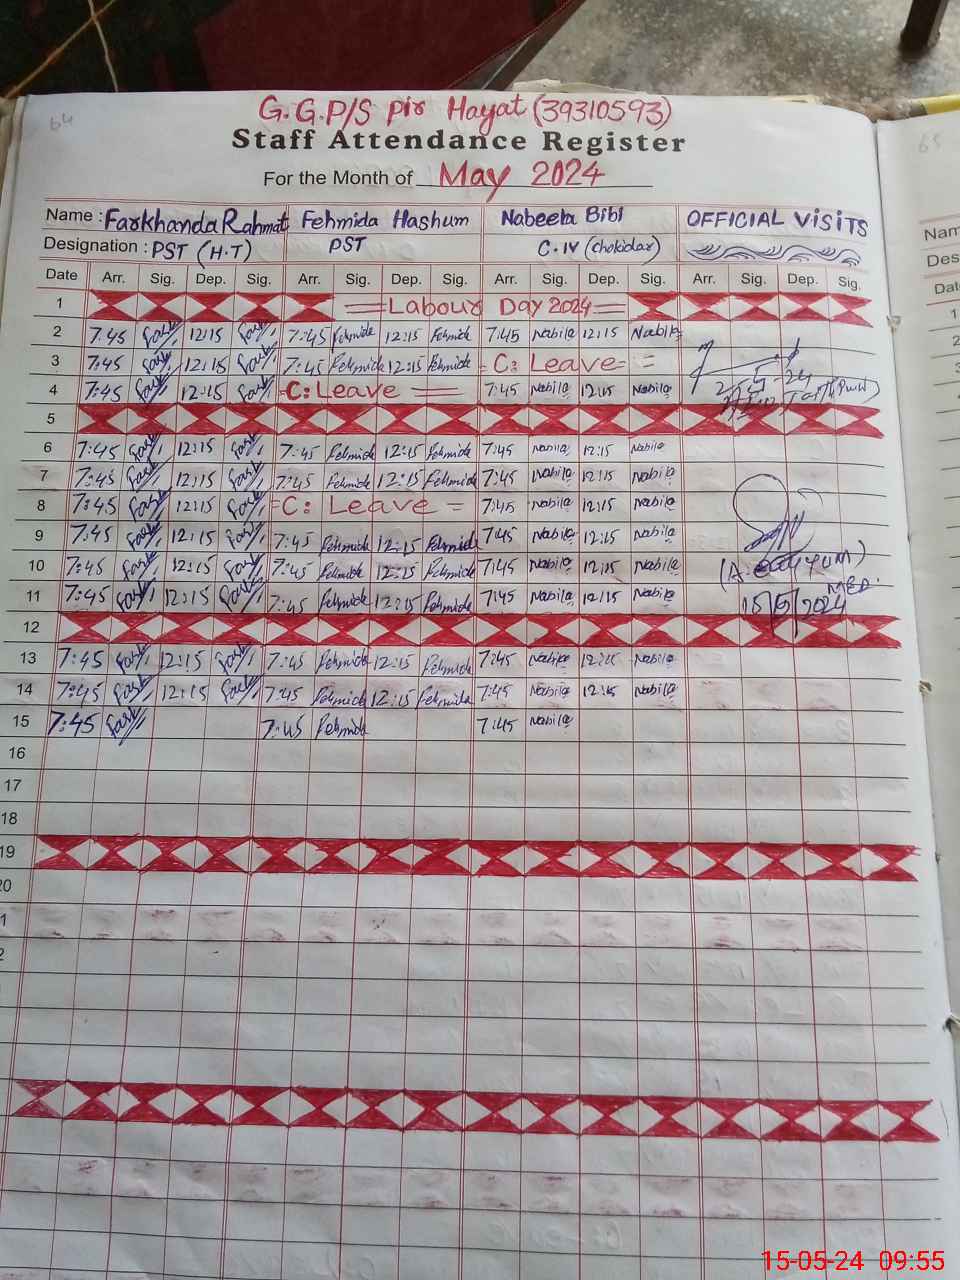 64
G.G.P/S Pir Hayat (39310593)
Staff Attendance Register
65
For the Month of May 2024
Name : Farkhanda Rahmat Fehmida Hashum Nabeela Bibi OFFICIAL VISITS
Nam
Designation : PST (H.T) PST C.IV (chokidar)
Des
Date Arr. Sig. Dep. Sig. Arr. Sig. Dep. Sig. Arr. Sig. Dep. Sig. Arr. Sig. Dep. Sig.
Date
1 Labour Day 2024
1
2 7:45 12:15 7:45 Fehmida 12:15 Fehmida 7:45 Nabila 12:15 Nabila
2
3 7:45 12:15 7:45 Fehmida 12:15 Fehmida C: Leave
3
4 7:45 12:15 C: Leave 7:45 Nabila 12:15 Nabila
4
5
6 7:45 12:15 7:45 Fehmida 12:15 Fehmida 7:45 Nabila 12:15 Nabila
7 7:45 12:15 7:45 Fehmida 12:15 Fehmida 7:45 Nabila 12:15 Nabila
8 7:45 12:15 C: Leave 7:45 Nabila 12:15 Nabila
9 7:45 12:15 7:45 Fehmida 12:15 Fehmida 7:45 Nabila 12:15 Nabila
10 7:45 12:15 7:45 Fehmida 12:15 Fehmida 7:45 Nabila 12:15 Nabila
11 7:45 12:15 7:45 Fehmida 12:15 Fehmida 7:45 Nabila 12:15 Nabila
2024
12
13 7:45 12:15 7:45 Fehmida 12:15 Fehmida 7:45 Nabila 12:15 Nabila
14 7:45 12:15 7:45 Fehmida 12:15 Fehmida 7:45 Nabila 12:15 Nabila
15 7:45 7:45 Fehmida 7:45 Nabila
16
17
18
19
20
1
2
15-05-24 09:55